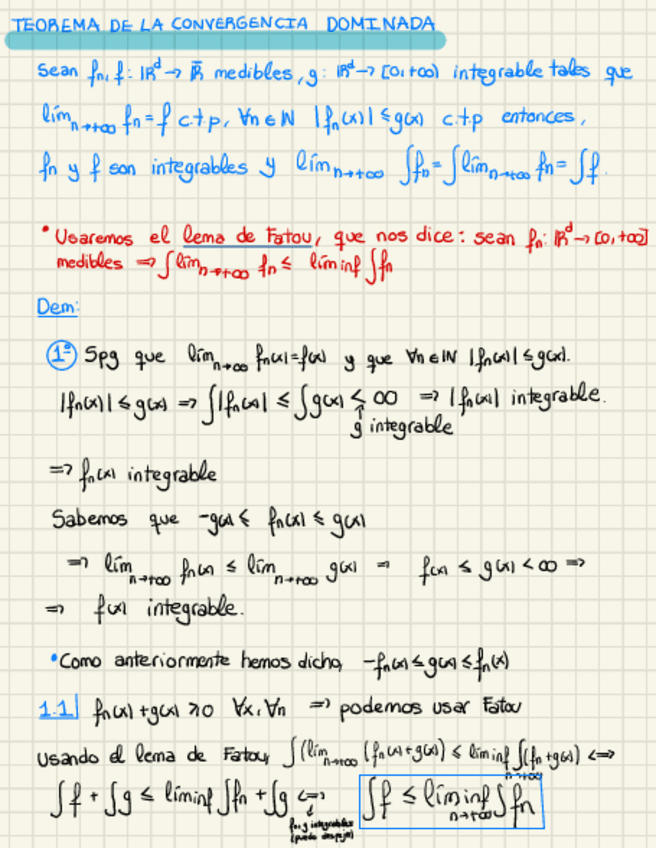 TEOREMA DE LA CONVERGENCIA DOMINADA
Sean fn, f: ℝᵈ → ℝ̅ medibles, g: ℝᵈ → [0,+∞) integrable tales que
límₙ→+∞ fn = f c.t.p, ∀n∈ℕ |fn(x)| ≤ g(x) c.t.p entonces,
fn y f son integrables y límₙ→+∞ ∫fn = ∫límₙ→+∞ fn = ∫f.
• Usaremos el lema de Fatou, que nos dice: sean fn: ℝᵈ → [0,+∞]
medibles ⇒ ∫límₙ→+∞ fn ≤ lím inf ∫fn
Dem:
1º Spg que límₙ→∞ fn(x)=f(x) y que ∀n∈ℕ |fn(x)| ≤ g(x).
|fn(x)| ≤ g(x) ⇒ ∫|fn(x)| ≤ ∫g(x) < ∞ ⇒ |fn(x)| integrable.
↑
g integrable
⇒ fn(x) integrable
Sabemos que -g(x) ≤ fn(x) ≤ g(x)
⇒ límₙ→+∞ fn(x) ≤ límₙ→+∞ g(x) = f(x) ≤ g(x) < ∞ ⇒
⇒ f(x) integrable.
• Como anteriormente hemos dicho, -fn(x) ≤ g(x) ≤ fn(x)
1.1 fn(x) + g(x) ≥ 0 ∀x, ∀n ⇒ podemos usar Fatou
Usando el lema de Fatou, ∫(límₙ→+∞ (fn(x)+g(x)) ≤ lím infₙ→+∞ ∫(fn+g(x)) ⇔
∫f + ∫g ≤ lím inf ∫fn + ∫g ⇔ ∫f ≤ lím infₙ→+∞ ∫fn
↓
f, g integrables
(puedo despejar)